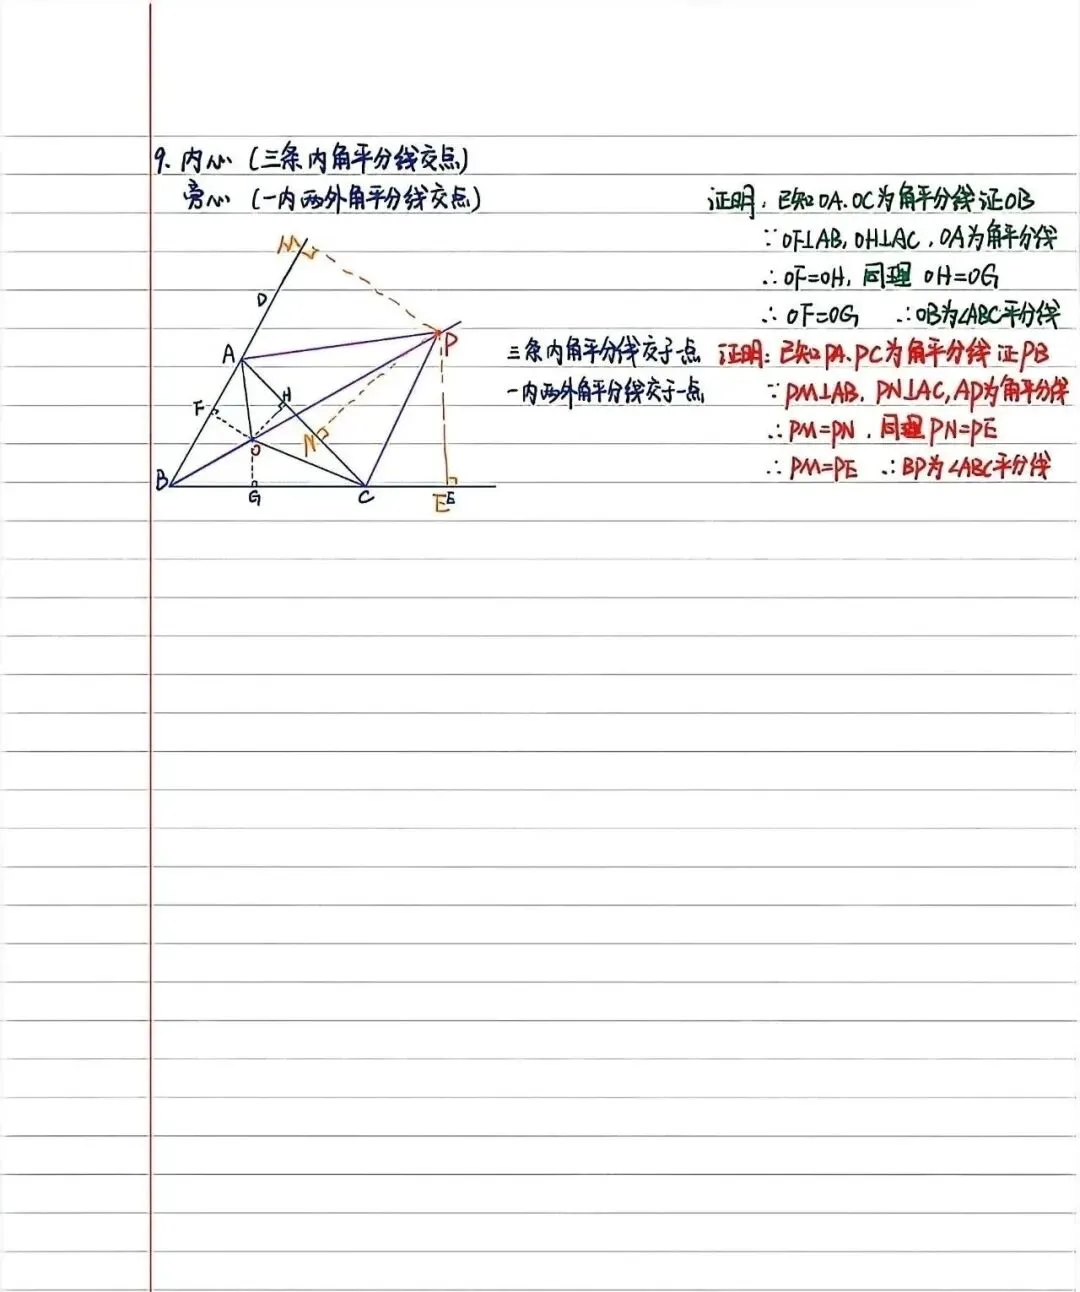 9. 内心 (三条内角平分线交点)
旁心 (一内两外角平分线交点)
M
D
A
P
F
H
O
N
B
G
C
E E
三条内角平分线交于一点
一内两外角平分线交于一点
证明: 已知OA.OC为角平分线证OB
∵OF⊥AB, OH⊥AC, OA为角平分线
∴OF=OH, 同理 OH=OG
∴OF=OG ∴OB为∠ABC平分线
证明: 已知PA.PC为角平分线证PB
∵PM⊥AB, PN⊥AC, AP为角平分线
∴PM=PN, 同理PN=PE
∴PM=PE ∴BP为∠ABC平分线